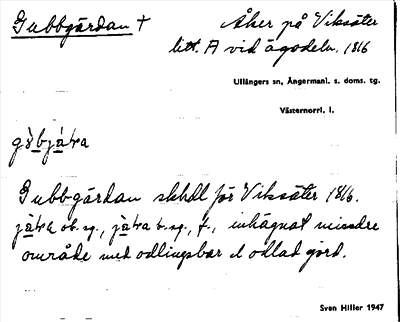 Gubbgärdan †
Åker på Viksäter
litt. A vid ägodeln. 1816
Ullångers sn, Ångermanl. s. doms. tg.
Västernorrl. l.
Gubb-gärdan skhdl för Viksäter 1816.
ob. sg., b. sg., f., inhägnat mindre
område med odlingsbar el odlad jord.
Sven Hiller 1947